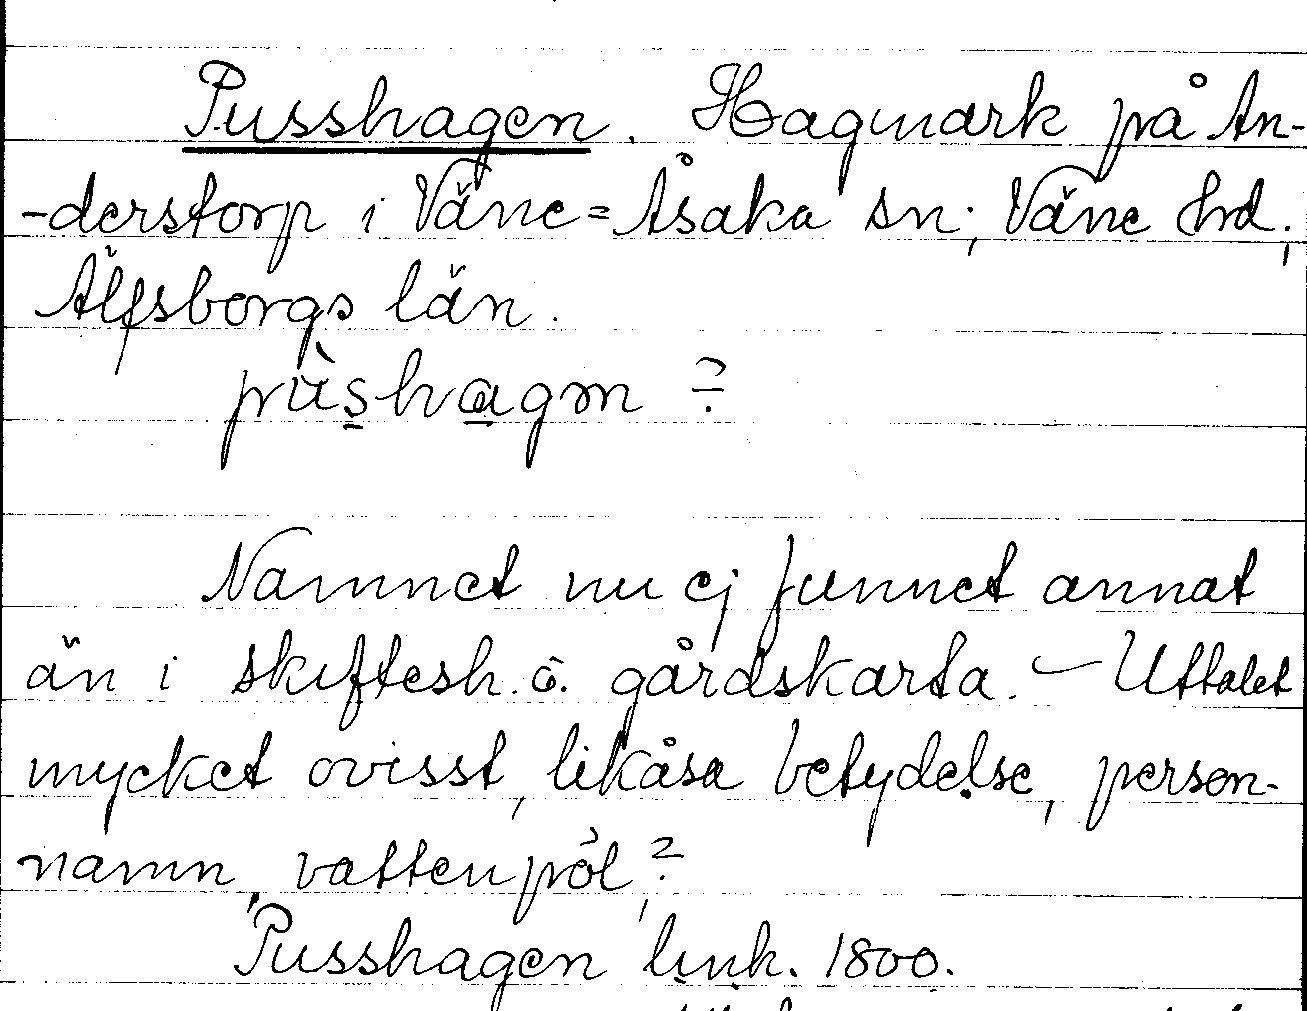 Pusshagen. Hagmark på An-
-derstorp i Väne=Åsaka sn; Väne hd;
Älfsborgs län.
pùshagm ?
Namnet nu ej funnet annat
än i skiftesh. o. gårdskarta. – Uttalet
mycket ovisst, likåsa betydelse, person-
namn, vattenpöl,?
Pusshagen link. 1800.